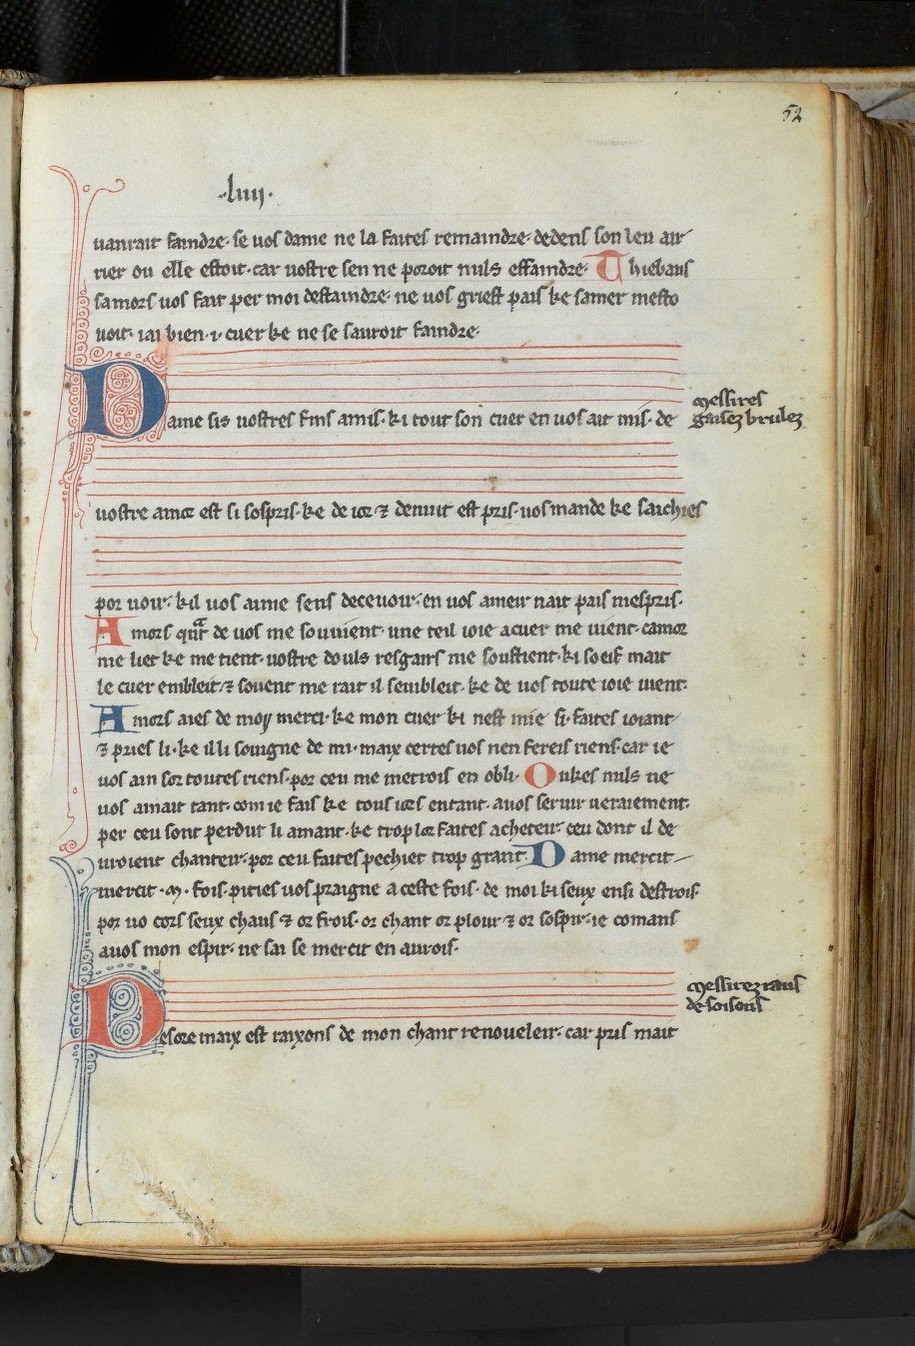 52
.liiij.
uanrait faindre. se uos dame ne la faites remaindre. dedens son leu air
rier ou elle estoit. car uostre sen ne poroit nuls effaindre. Thiebaus
samors uos fait per moi destaindre. ne uos griest pais ke samer
uoit. iai bien .i. cuer ke ne se sauroit faindre.
Dame sis uostres fins amis. ki tout son cuer en uos ait mis. de
messires
gaisez brulez
uostre amor est si sospris. ke de ior ⁊ denuit est pris. uos mande ke saichies
por uoir. kil uos aime sens deceuoir. en uos ameir nait pais mespris.
Amors qnt de uos me souuient. une teil ioie a cuer me uient. camor
me liet ke me tient. uostre douls resgairs me soustient. ki soeif mait
le cuer embleit. ⁊ souent me rait il sembleit. ke de uos toute ioie uient.
Amors aies de moy merci. ke mon cuer ki nest mie si. faites ioiant
⁊ pries li. ke illi souigne de mi. maix certes uos nen fereis riens. car ie
uos ain sor toutes riens. por ceu me metrois en obli. Onkes nuls ne
uos amait tant. com ie fais ke tous iors entant. a uos seruir ueraiement.
per ceu sont perdut li amant. ke trop lor faites acheteir. ceu dont il de
uroient chanteir. por ceu faites pechiet trop grant. Dame mercit
mercit .m. fois. pities uos praigne a ceste fois. de moi ki seux ensi destrois
por uo cors seux chaus ⁊ or frois. or chant or plour ⁊ or sospir. ie comans
auos mon espir. ne sai se mercit en aurois.
messirez raus
de soisons
Desore maix est raixons de mon chant renoueleir. car pris mait